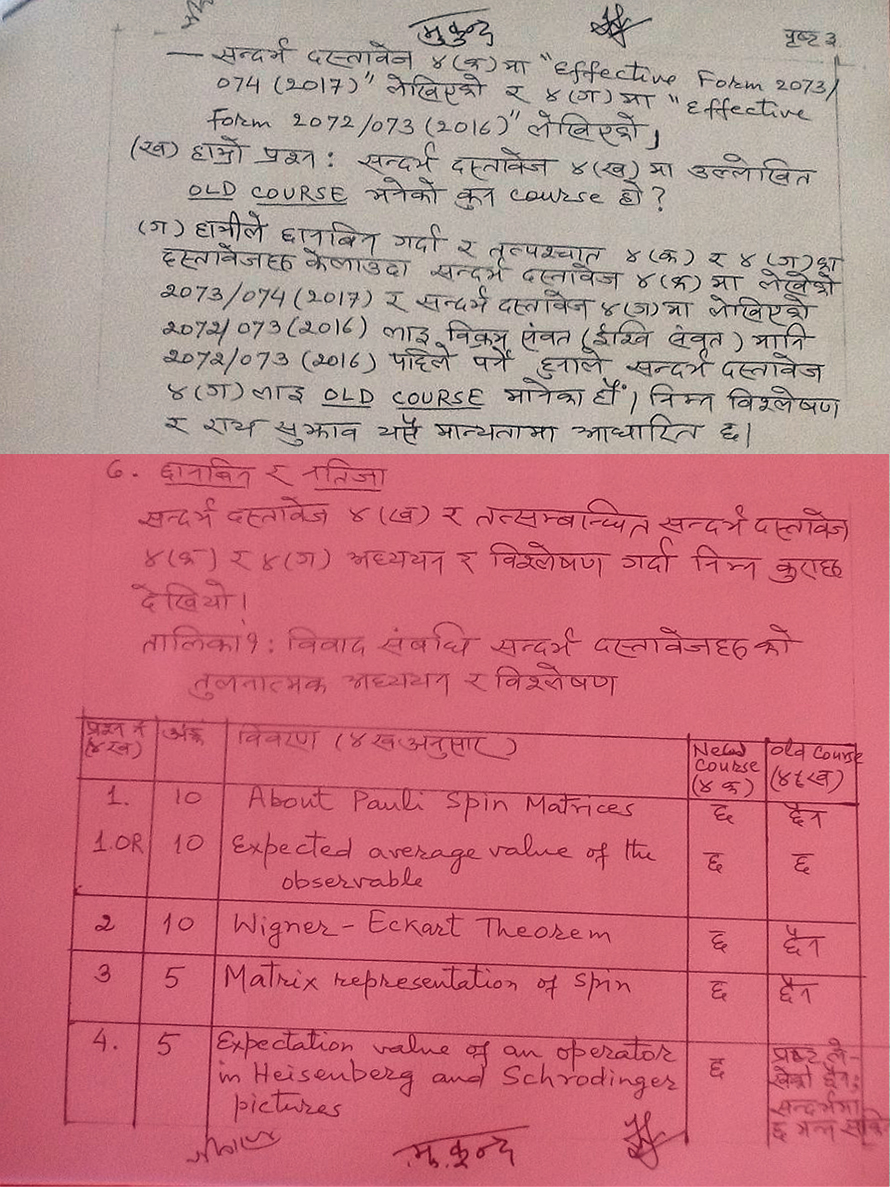 मुकुन्द
पृष्ट ३
— सन्दर्भ दस्तावेज ४(क)मा "Effective Form 2073/
074 (2017)" लेखिएको र ४(ग)मा "Effective
Form 2072/073 (2016)" लेखिएको,
(ख) हाम्रो प्रश्न : सन्दर्भ दस्तावेज ४(ख)मा उल्लेखित
OLD COURSE भनेको कुन course हो ?
(ग) हामीले छानबिन गर्दा र तत्पश्चात ४(क) र ४(ग)का
दस्तावेजहरु केलाउदा सन्दर्भ दस्तावेज ४(क)मा लेखेको
2073/074(2017) र सन्दर्भ दस्तावेज ४(ग)मा लेखिएको
2072/073(2016) लाइ विक्रम संवत (ईश्वि संवत) मानि
2072/073 (2016) पहिले पर्ने हुनाले सन्दर्भ दस्तावेज
४(ग) लाइ OLD COURSE मानेका हौं। निम्न विश्लेषण
र राय सुझाव यसै मान्यतामा आधारित छ।
6. छानबिन र नतिजा
सन्दर्भ दस्तावेज ४(ख) र तत्सम्बान्धित सन्दर्भ दस्तावेज
४(क) र ४(ग) अध्ययन र विश्लेषण गर्दा निम्न कुराहरु
देखियो।
तालिका १: विवाद संबधि सन्दर्भ दस्तावेजहरुको
तुलनात्मक अध्ययन र विश्लेषण
प्रश्न नं (४ख) अङ्क विवरण (४ख अनुसार) New Course (४क) Old Course (४ख)
1. 10 About Pauli Spin Matrices छ छैन
1.OR 10 Expected average value of the observable छ छ
2 10 Wigner-Eckart Theorem छ छैन
3 5 Matrix representation of spin छ छैन
4. 5 Expectation value of an operator in Heisenberg and Schrodinger pictures छ प्रष्ट लेखेको छैन; सन्दर्भमा छ भन्न
मुकुन्द